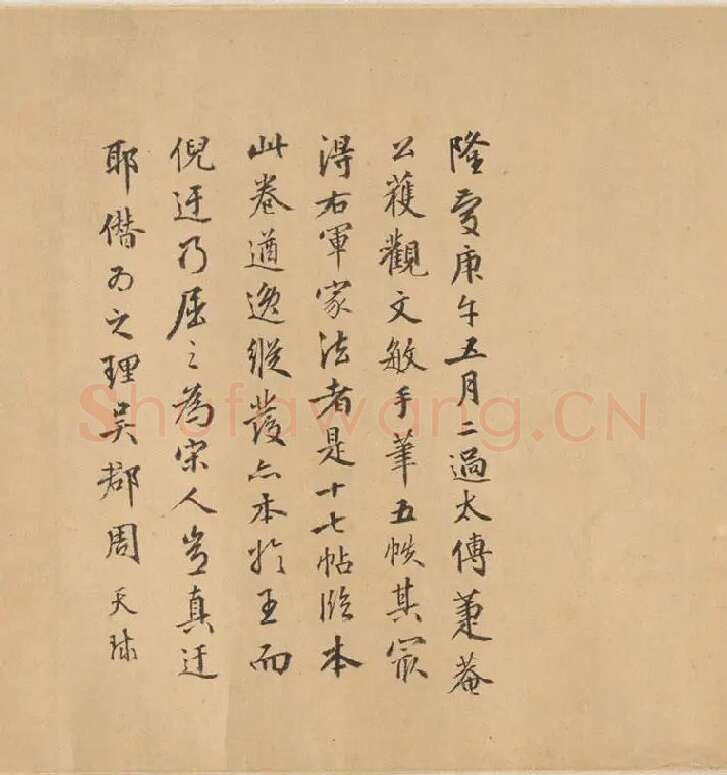 隆慶庚午五月二過太傅蒹菴
公獲觀文敏手筆五帙其寂
得右軍家法者是十七帖臨本
此卷遒逸縱發亦本於王而
倪迂乃屈之為宋人豈真迂
耶僭為之理吳郡周天球
Shufawang.CN